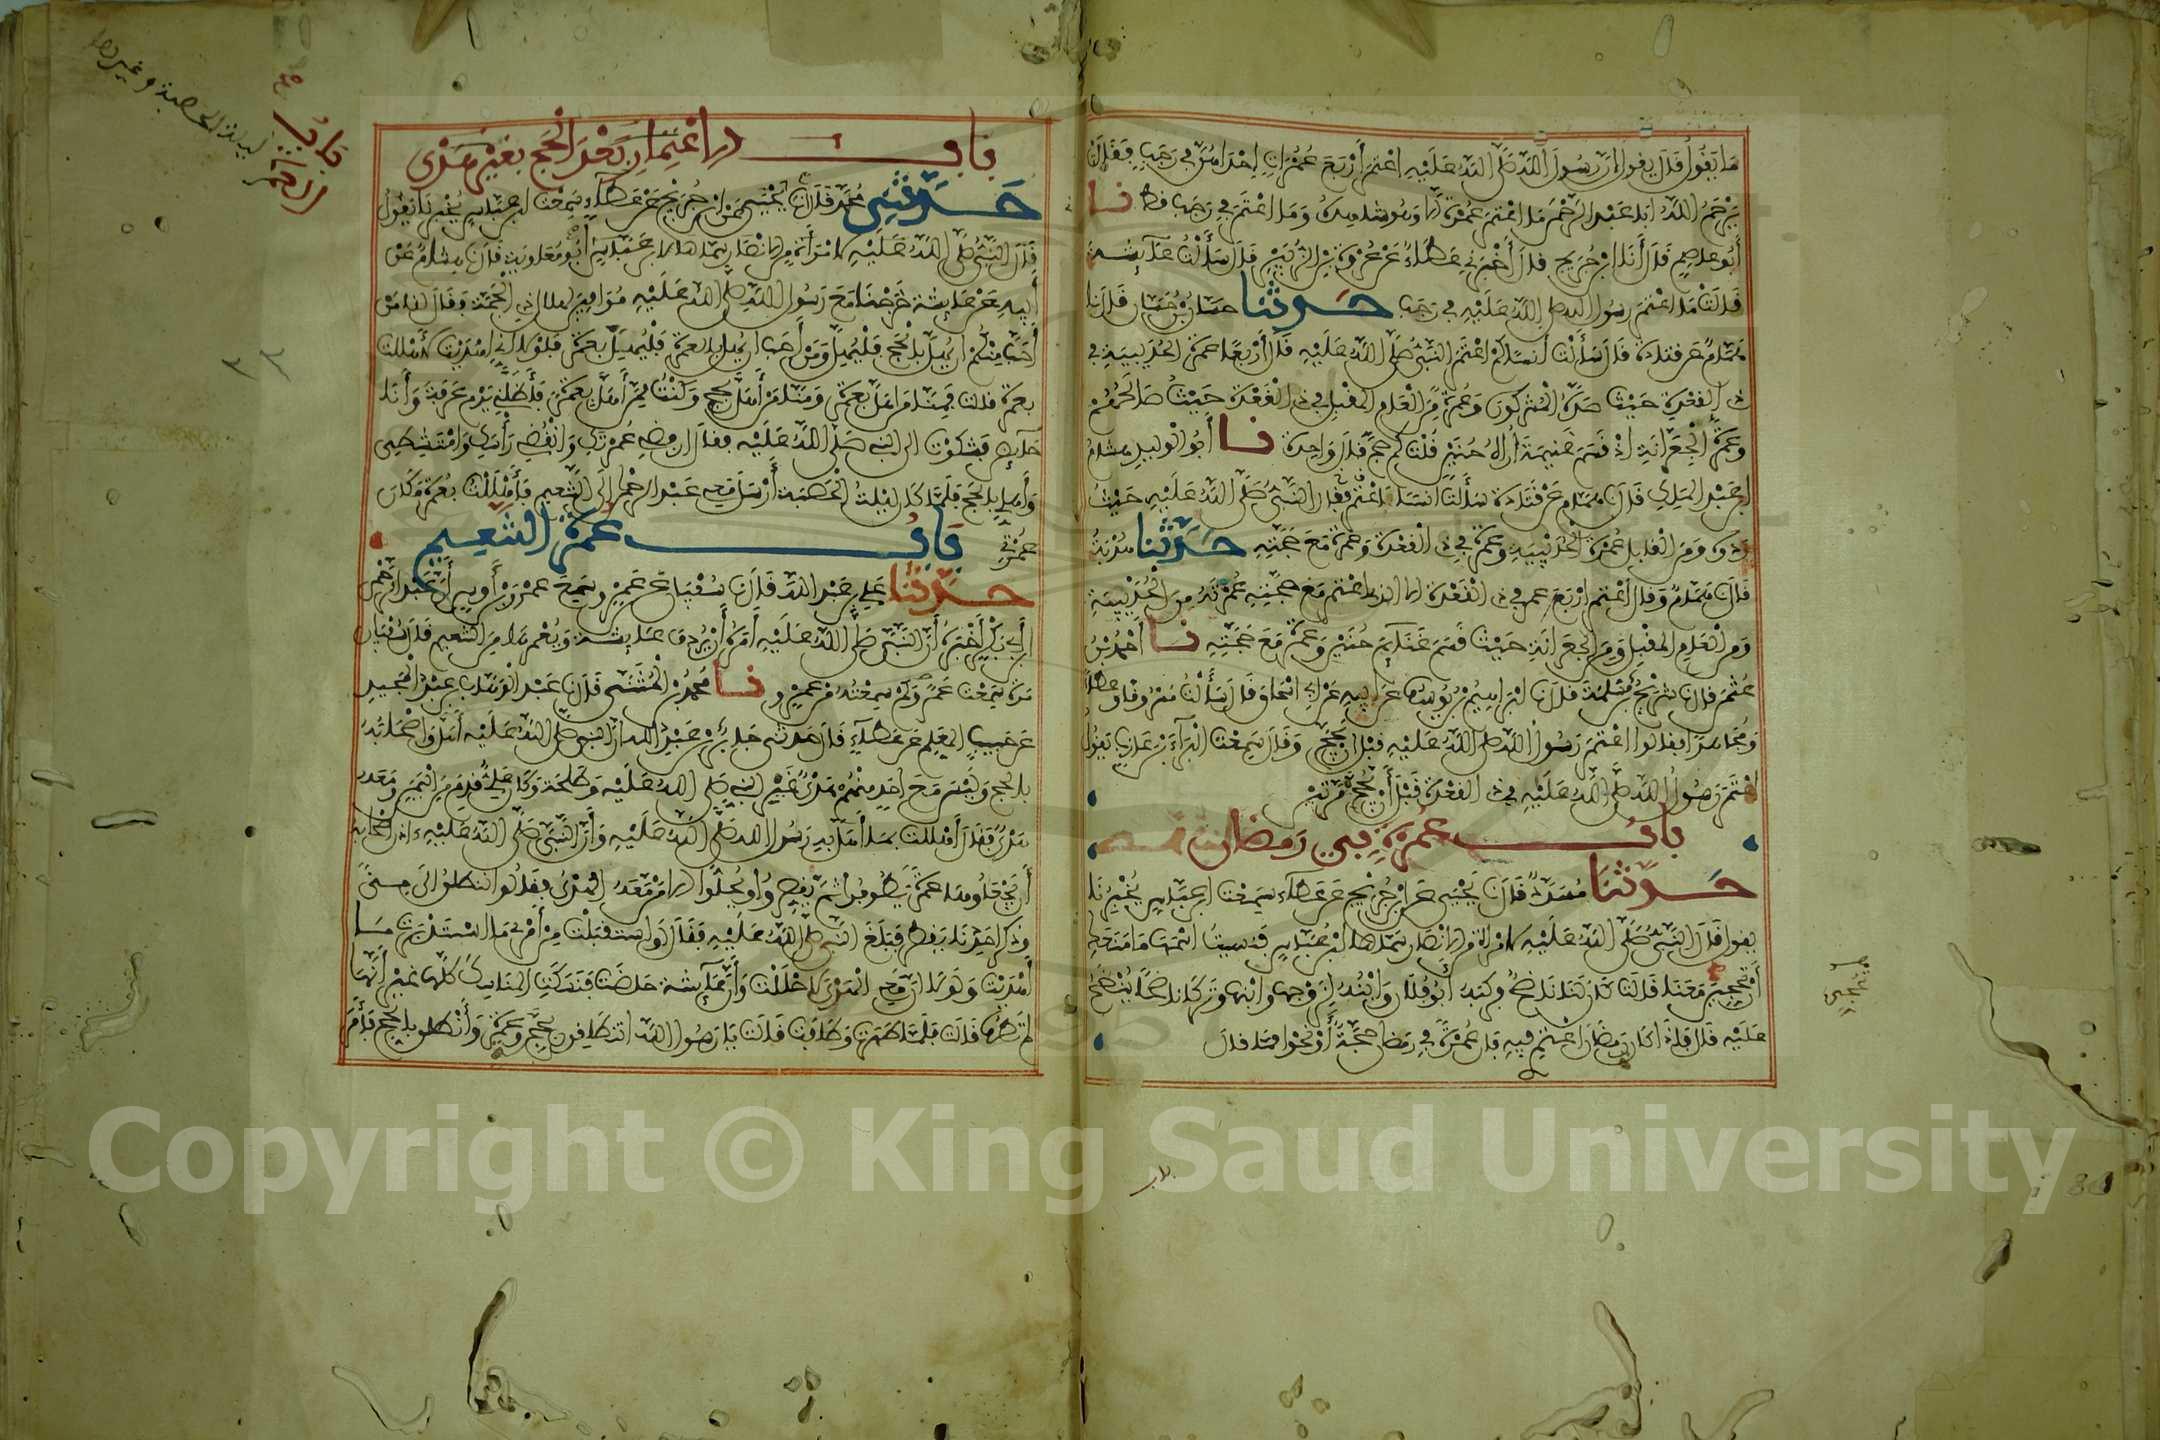 ما يقول قال يقول ان رسول الله صلى الله عليه اعتمر أربع عمرات احداهن في رجب فقالت
يرحم الله ابا عبد الرحمن ما اعتمر عمرة الا وهو شاهده وما اعتمر في رجب قط نا
أبو عاصم قال أنا ابن جريج قال أخبرني عطاء عن عروة بن الزبير قال سألت عائشة
قالت ما اعتمر رسول الله صلى الله عليه في رجب حدثنا حسان بن حسان قال نا
همام عن قتادة قال سألت أنسا كم اعتمر النبي صلى الله عليه قال أربعا عمرة الحديبية في
ذي القعدة حيث صده المشركون وعمرة من العام المقبل في ذي القعدة حيث صالحهم
وعمرة الجعرانة اذ قسم غنيمة أراه حنين قلت كم حج قال واحدة نا أبو الوليد هشام
ابن عبد الملك قال نا همام عن قتادة سألت انسا فقال اعتمر النبي صلى الله عليه حيث
ردوه ومن القابل عمرة الحديبية وعمرة في ذي القعدة وعمرة مع حجته حدثنا هدبة
قال نا همام وقال اعتمر اربع عمر في ذي القعدة الا الذي اعتمر مع حجته عمرته من الحديبية
ومن العام المقبل ومن الجعرانة حيث قسم غنائم حنين وعمرة مع حجته نا أحمد بن
عثمن قال نا شريح بن مسلمة قال نا ابراهيم بن يوسف عن ابيه عن ابي اسحاق قال سألت مسروقا وعطاء
ومجاهدا فقالوا اعتمر رسول الله صلى الله عليه قبل ان يحج وقال سمعت البراء بن عازب يقول
اعتمر رسول الله صلى الله عليه في ذي القعدة قبل أن يحج مرتين
باب عمرة في رمضان
حدثنا مسدد قال نا يحيى عن ابن جريج عن عطاء سمعت ابن عباس يخبرنا
يقول قال النبي صلى الله عليه لامرأة من الانصار سماها ابن عباس فنسيت اسمها ما منعك
أن تحجين معنا قالت كان لنا ناضح فركبه أبو فلان وابنه لزوجها وابنها وترك ناضحا ينضح
عليه قال فاذا كان رمضان اعتمري فيه فان عمرة في رمضان حجة أو نحوا مما قال
تحجي
باب الاعتمار بعد الحج بغير هدي
حدثني محمد قال نا يحيى عن ابن جريج عن عطاء سمعت ابن عباس يخبرنا يقول
قال النبي صلى الله عليه لامرأة من الانصار سماها ابن عباس أبو معاوية قال نا هشام عن
أبيه عن عايشة خرجنا مع رسول الله صلى الله عليه موافين لهلال ذي الحجة فقال لنا من
أحب منكم أن يهل بالحج فليهل ومن أحب ان يهل بعمرة فليهل بعمرة فلولا اني اهديت لأهللت
بعمرة قالت فمنا من اهل بعمرة ومنا من أهل بحج وكنت ممن أهل بعمرة فأظلني يوم عرفة وأنا
حائض فشكوت الى النبي صلى الله عليه فقال ارفضي عمرتك وانقضي رأسك وامتشطي
وأهلي بالحج فلما كان ليلة الحصبة أرسل معي عبد الرحمن الى التنعيم فأهللت بعمرة مكان
عمرتي باب عمرة التنعيم
حدثنا علي بن عبد الله قال نا سفيان عن عمرو سمع عمرو بن أوس أن عبد الرحمن
ابن أبي بكر أخبره أن النبي صلى الله عليه أمره أن يردف عايشة ويعمرها من التنعيم قال سفيان
مرة سمعت عمرا وكم سمعته من عمرو نا محمد بن المثنى قال نا عبد الوهاب بن عبد المجيد
عن حبيب المعلم عن عطاء قال حدثني جابر بن عبد الله ان النبي صلى الله عليه أهل وأصحابه
بالحج وليس مع احد منهم هدي غير النبي صلى الله عليه وطلحة وكان علي قدم من اليمن ومعه
هدي فقال أهللت بما أهل به رسول الله صلى الله عليه وأن النبي صلى الله عليه اذن لأصحابه
أن يجعلوها عمرة يطوفوا ثم يقصروا ويحلوا الا من معه الهدي فقالوا ننطلق الى منى
وذكر احدنا يقطر فبلغ النبي صلى الله عليه فقال لو استقبلت من أمري ما استدبرت ما
أهديت ولولا ان معي الهدي لأحللت وأن عائشة حاضت فنسكت المناسك كلها غير أنها
لم تطف قالت فلما طهرت وطافت قالت يا رسول الله اتنطلقون بحج وعمرة وأنطلق بالحج فأمر
باب العمرة
ليلة الحصبة وغيرها
Copyright © King Saud University